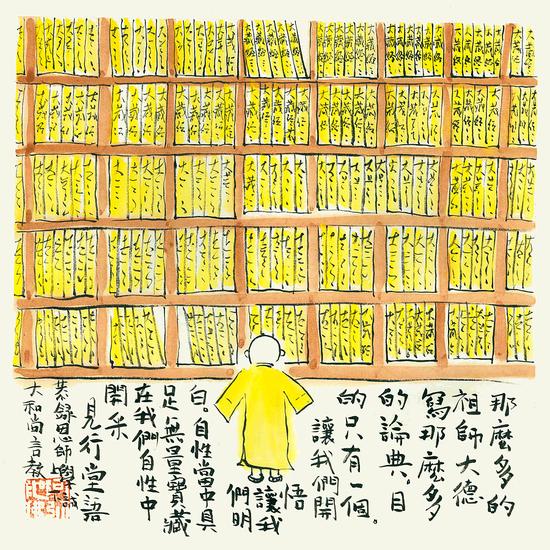 大藏經
那麼多的
祖師大德
寫那麼多
的論典,目
的只有一個。
讓我們開
悟
讓我
們明
白。自性當中具
足無量寶藏
在我們自性中
開采
見行堂語
恭錄恩師上學下誠
大和尚言教